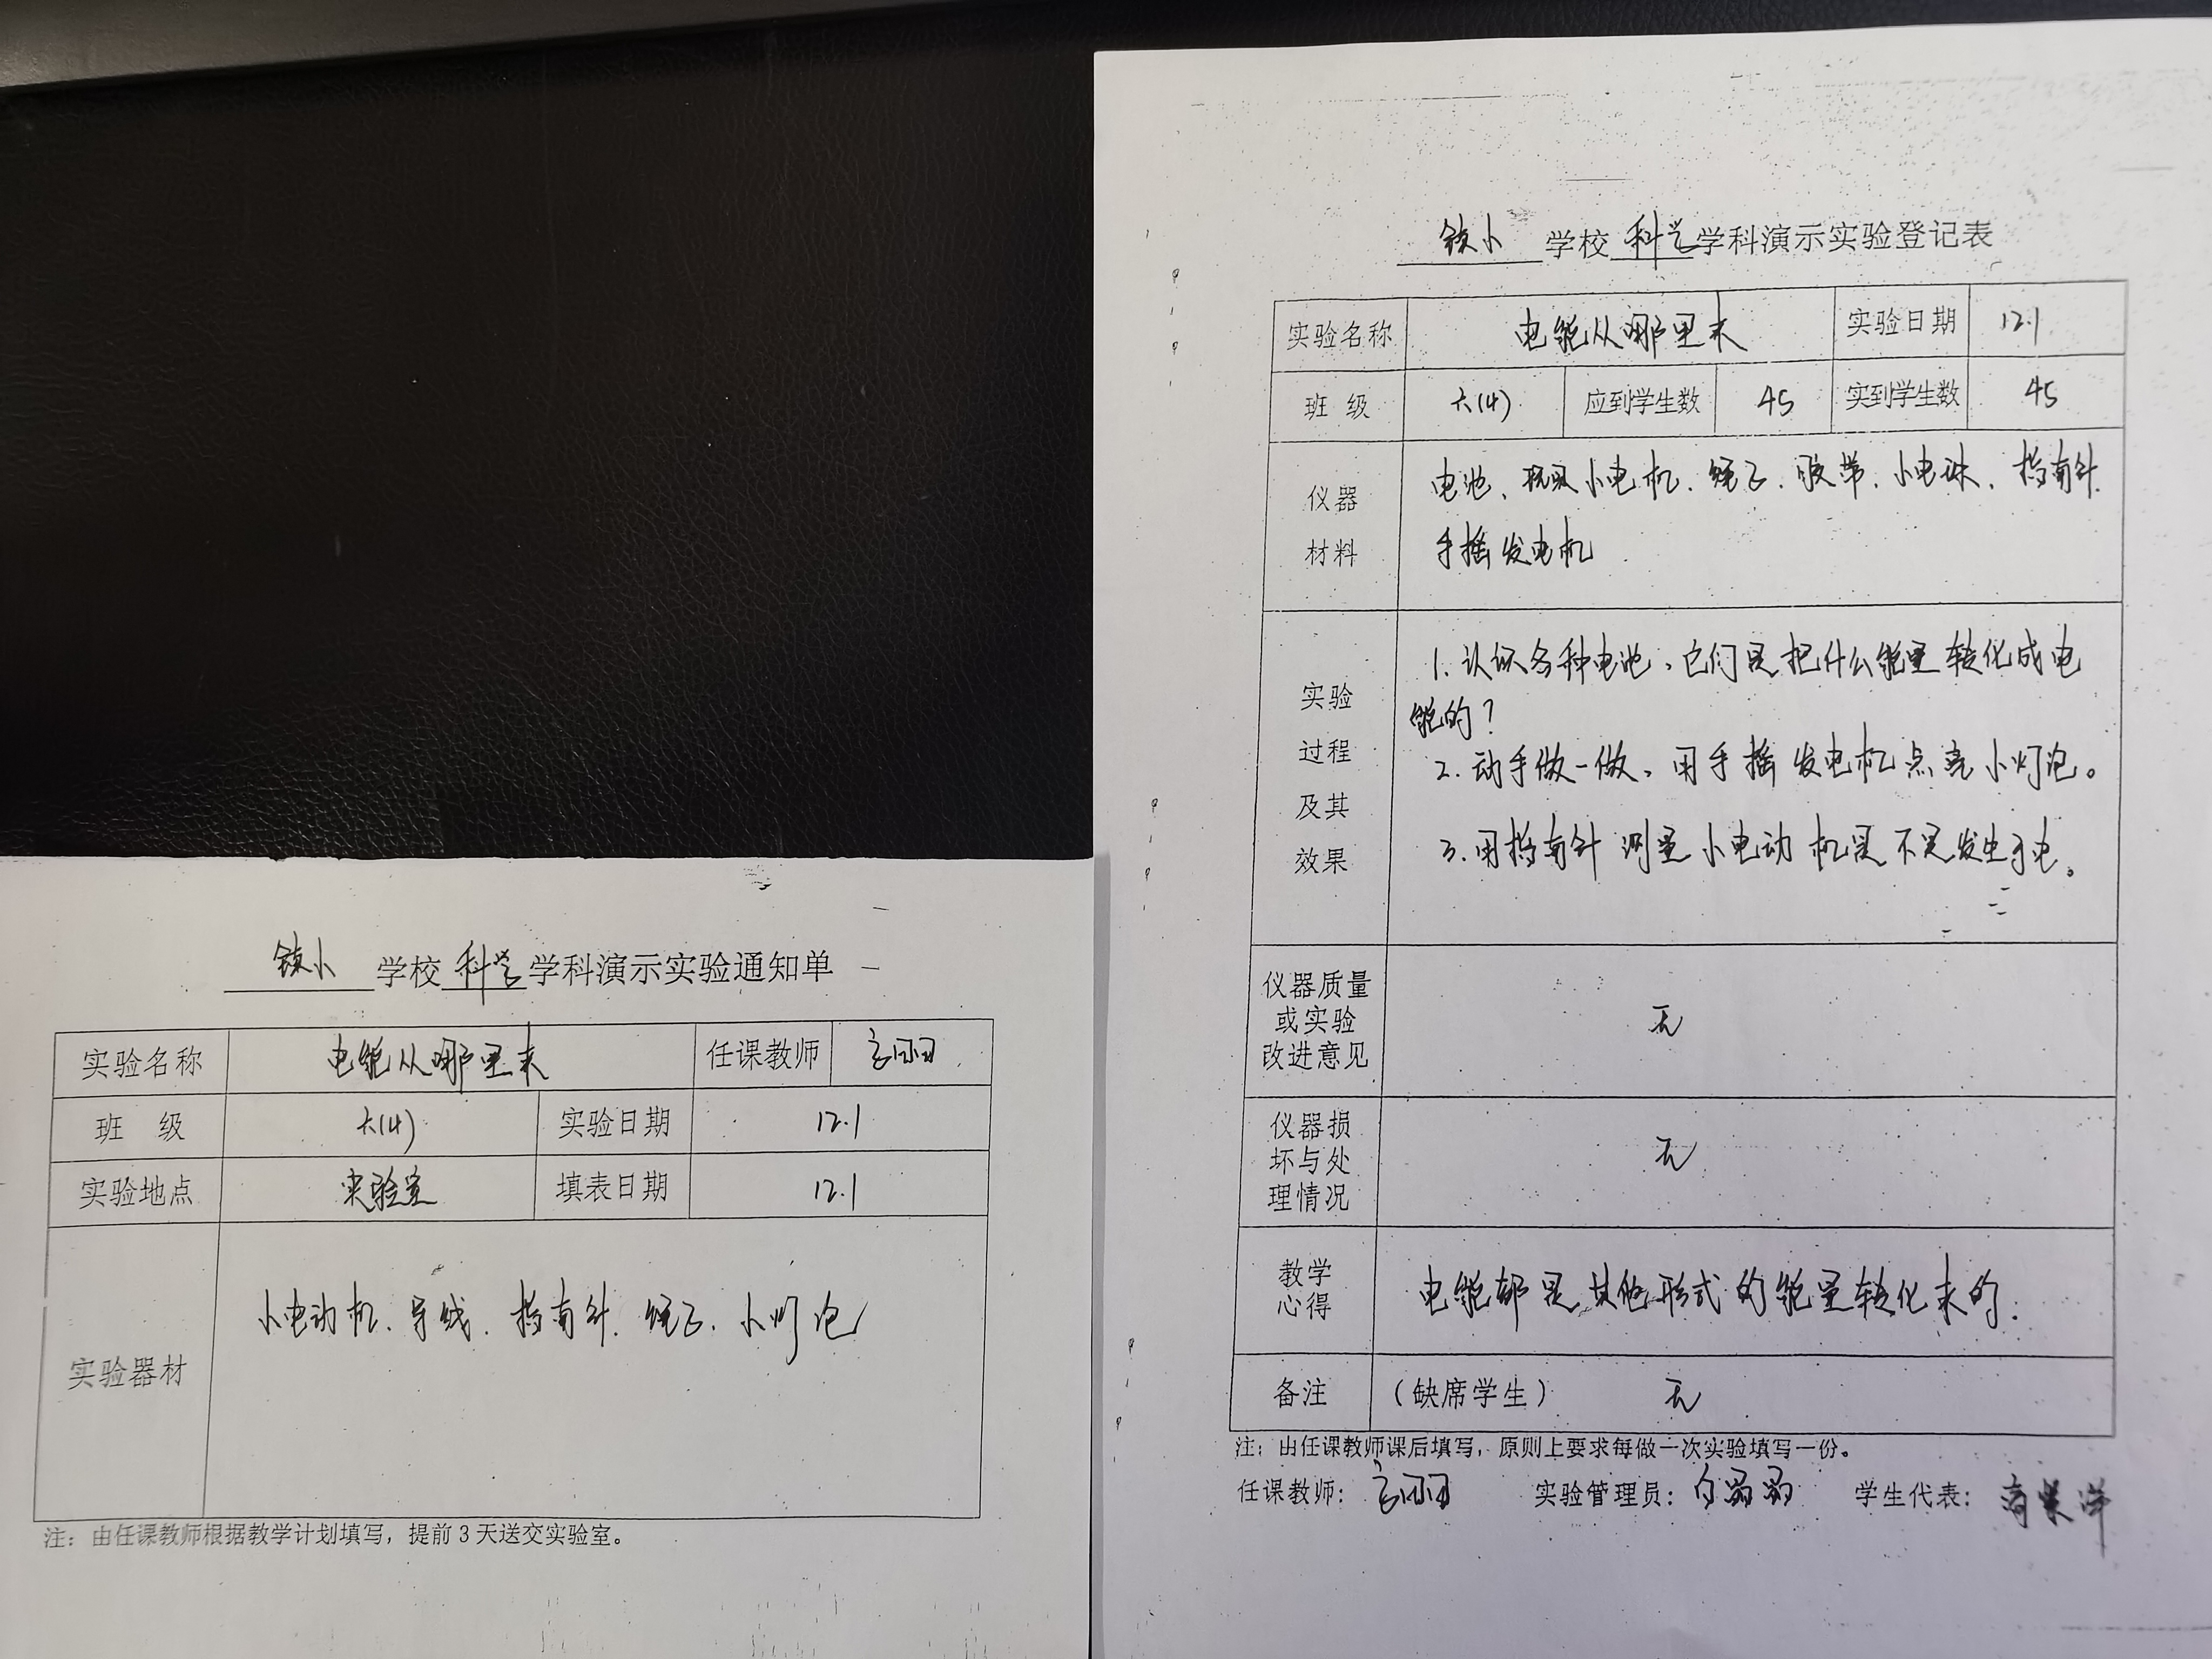 铁小 学校 科学 学科演示实验通知单
实验名称 电能从哪里来 任课教师
班 级 六(4) 实验日期 12.1
实验地点 实验室 填表日期 12.1
实验器材
小电动机、导线、指南针、绳子、小灯泡
注：由任课教师根据教学计划填写，提前3天送交实验室。
铁小 学校 科学 学科演示实验登记表
实验名称 电能从哪里来 实验日期 12.1
班 级 六(4) 应到学生数 45 实到学生数 45
仪器
材料
电池、小电机、绳子、胶带、小电珠、指南针
手摇发电机
实验
过程
及其
效果
1. 认识各种电池，它们是把什么能量转化成电
能的？
2. 动手做一做，用手摇发电机点亮小灯泡。
3. 用指南针测量小电动机是不是发生了电。
仪器质量
或实验
改进意见
无
仪器损
坏与处
理情况
无
教学
心得
电能都是其他形式的能量转化来的.
备注 （缺席学生） 无
注：由任课教师课后填写，原则上要求每做一次实验填写一份。
任课教师： 实验管理员： 学生代表：